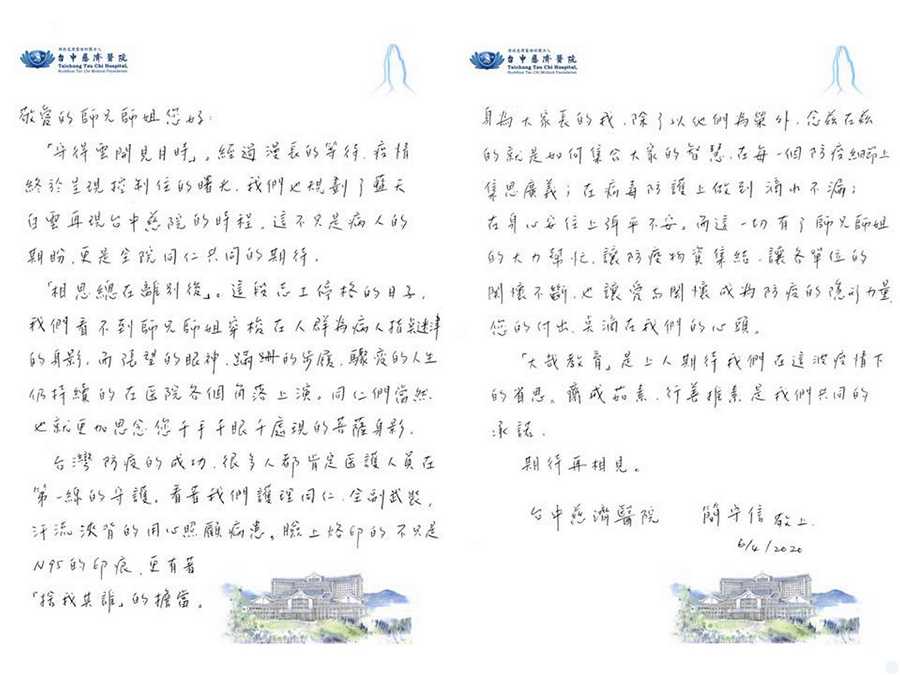 佛教慈濟醫療財團法人
台中慈濟醫院
Taichung Tzu Chi Hospital,
Buddhist Tzu Chi Medical Foundation
敬愛的師兄師姐您好：
「守得雲開見日時」。經過漫長的等待，疫情
終於呈現控制住的曙光，我們也規劃了藍天
白雲再現台中慈院的時程，這不只是病人的
期盼，更是全院同仁共同的期待。
「相思總在離別後」。這段志工停格的日子，
我們看不到師兄師姐穿梭在人群為病人指點迷津
的身影，而張望的眼神，蹣跚的步履，驟變的人生
仍持續的在医院各個角落上演。同仁們當然
也就更加思念您千手千眼千處現的菩薩身影。
台灣防疫的成功，很多人都肯定医護人員在
第一線的守護。看著我們護理同仁，全副武裝，
汗流浹背的用心照顧病患。臉上烙印的不只是
N95的印痕，更有著
「捨我其誰」的擔當。
佛教慈濟醫療財團法人
台中慈濟醫院
Taichung Tzu Chi Hospital,
Buddhist Tzu Chi Medical Foundation
身為大家長的我，除了以他們為榮外，念茲在茲
的就是如何集合大家的智慧，在每一個防疫細節上
集思廣義；在病毒防護上做到滴水不漏；
在身心安住上弭平不安。而這一切有了師兄師姐
的大力幫忙，讓防疫物資集結，讓各單位的
關懷不斷，也讓愛與關懷成為防疫的隱形力量，
您的付出，点滴在我們的心頭。
「大哉教育」是上人期待我們在這波疫情下
的省思。齋戒茹素，行善推素是我們共同的
承諾。
期待再相見。
台中慈濟醫院 簡守信 敬上
6/4/2020